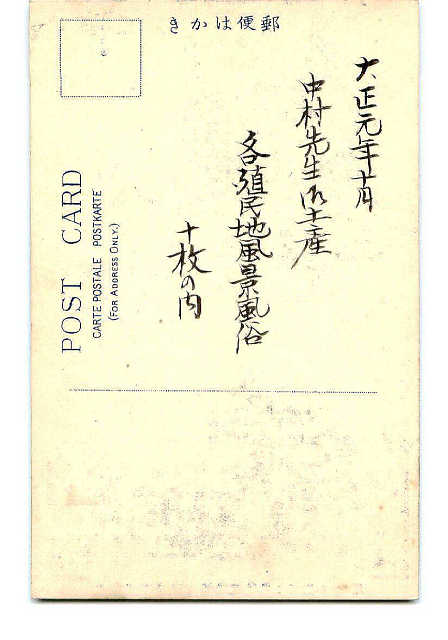 きかは便郵
大正元年十月
中村先生御土産
各殖民地風景風俗
十枚の内
POST CARD
CARTE POSTALE POSTKARTE
(FOR ADDRESS ONLY.)